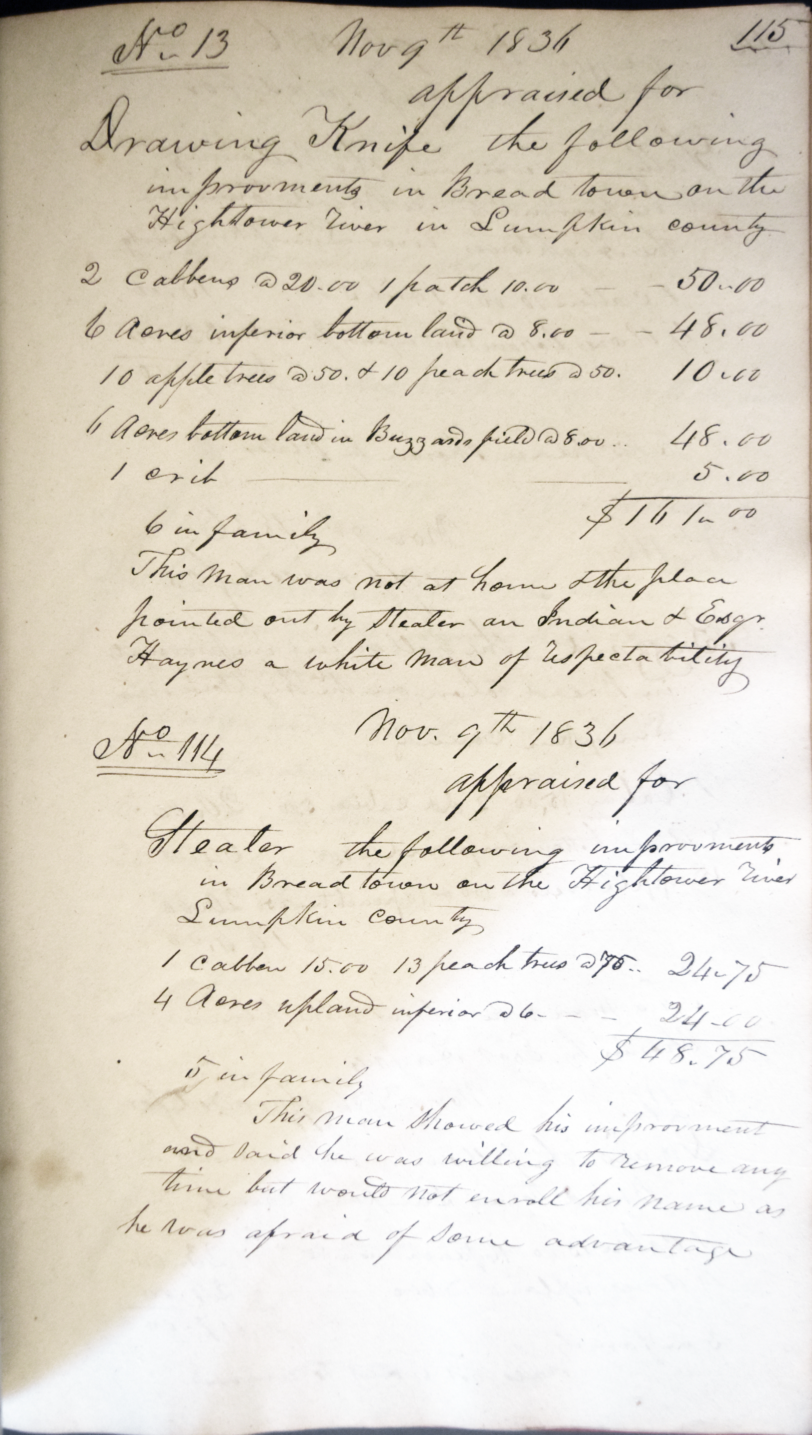 No 13 Nov 9th 1836 115
appraised for
Drawing Knife the following
improvments in Bread town on the
Hightower River in Lumpkin county
2 Cabbens @ 20.00 1 patch 10.00 - - 50.00
6 Acres inferior bottom land @ 8.00 - - 48.00
10 apple trees @ 50. & 10 peach trees @ 50. 10.00
6 Acres bottom land in Buzzards field @ 8.00.. 48.00
1 crib 5.00
$161.00
6 in family
This man was not at home & the place
pointed out by Stealer an Indian & Esqr.
Haynes a white man of respectability
No 114 Nov. 9th 1836
appraised for
Stealer the following improvments
in Bread town on the Hightower River
Lumpkin county
1 Cabben 15.00 13 peach trees @ 75.. 24.75
4 Acres upland inferior @ 6- - - 24.00
$48.75
5 in family
This man showed his improvment
and said he was willing to remove any
time but would not enroll his name as
he was afraid of some advantage